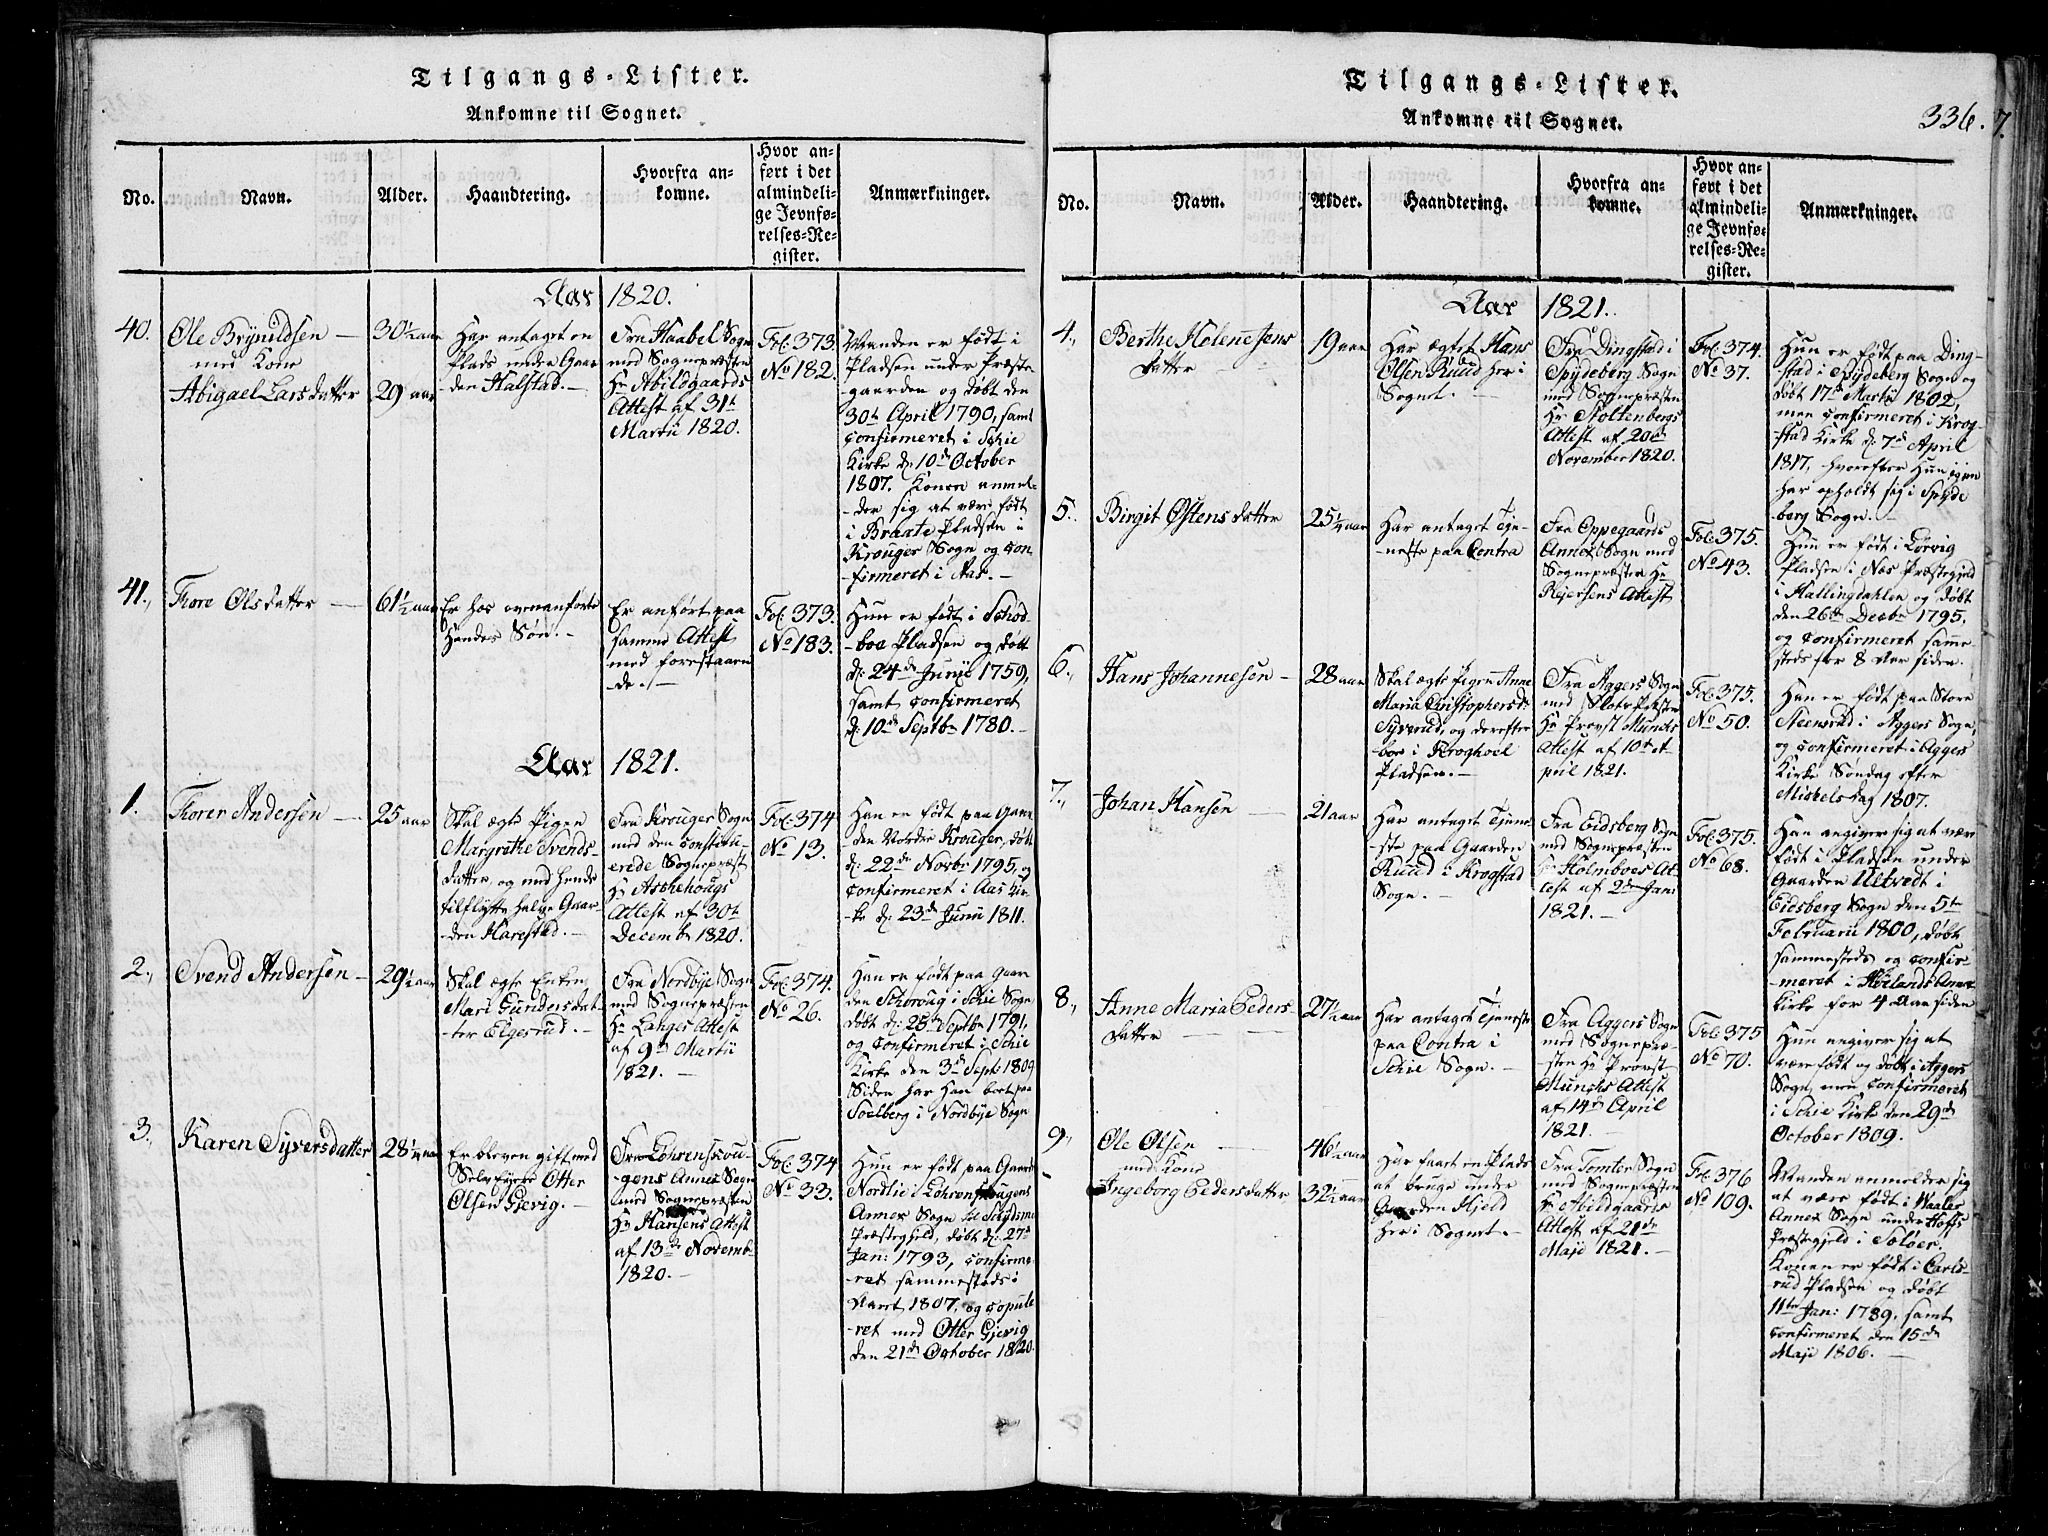 Tilgangs-Lister.
Ankomne til Sognet.
No.
Navn.
Alder.
Haandtering.
Hvorfra an-
komne.
Hvor an-
ført i det
almindeli-
ge Jevnfø-
relses-Re-
gister.
Anmærkninger.
Aar 1820.
40.
Ole Brynildsen
med Kone
Abigael Larsdatter
30½ aar
29 aar
Har antaget en
Plads under Gaar
den Halstad.
Fra Haabel Sogn
med Sognepræsten
Hr Abildgaards
Attest af 31t
Martii 1820.
Fol: 373.
No 182.
Manden er født i
Pladsen under Præste
gaarden og døbt den
30t April 1790, samt
confirmeret i Schie
Kirke d: 10de October
1807. Konen anmel-
-der sig at være født
i Braate Pladsen i
Krouger Sogn og con-
-firmeret i Aas.
41.
Tore Olsdatter
61½ aar
Er hos ovenanførte
Hendes Søn.
Er anført paa
samme Attest
med forestaaen
de.
Fol: 373.
No 183.
Hun er født i
-boe Pladsen og døbt
d: 24de Junii 1759,
samt confirmeret
d: 10de Septbr 1780.
Aar 1821.
1.
Torer Andersen
25 aar
Skal ægte Pigen
Margrethe Svends-
datter, og med hende
tilflytte halve Gaar-
-den Harestad.
Fra Krouger Sogn
med den constitu-
erede Sognepræst
Hr Aschehougs
Attest af 30t
Decembr 1820.
Fol: 374
No 13.
Han er født paa Gaar
den Nordre Krouger, døbt
d: 22de Novbr 1795, og
confirmeret i Aas Kir-
-ke d: 23de Junii 1811.
2.
Svend Andersen
29½ aar
Skal ægte Enken
Mari Gundersdat-
ter Elgerud.
Fra Nordbye Sogn
med Sognepræsten
Hr Langes Attest
af 9de Martii
1821.
Fol: 374.
No 26.
Han er født paa Gaar
den Schoroug i Schie Sogn
døbt d: 25de Septbr 1791,
og confirmeret i Schie
Kirke den 3de Sept: 1809
Siden har Han boet paa
Soelberg i Nordbye Sogn
3.
Karen Syversdatter
28¼ aar
Er bleven gift med
Selveyeren Otter
Olsen Gjevig.
Fra Løhrenskou-
-gens Annex Sogn
med Sognepræsten
Hr Hansens Attest
af 13de Novemb-
1820.
Fol: 374
No 33.
Hun er født paa Gaard
Nordlie i Løhrenskougens
Annex Sogn til Skydsmoe
Præstegjeld, døbt d: 27de
Jan: 1793, confirme-
-ret sammesteds i
Aaret 1807, og copule
-ret med Otter Gjevig
den 21de October 1820.
Tilgangs-Lister.
Ankomne til Sognet.
336.
7.
No.
Navn.
Alder.
Haandtering.
Hvorfra an-
komne.
Hvor an-
ført i det
almindeli-
ge Jevnfø-
relses-Re-
gister.
Anmærkninger.
Aar 1821.
4.
Berthe Helene Jens
datter
19 aar
Har ægtet Hans
Olsen Ruud her i
Sognet.
Fra Dingstad i
Spydeberg Sogn
med Sognepræsten
Hr Stoltenbergs
Attest af 20de
November 1820.
Fol: 374.
No 37.
Hun er født paa Ding-
stad i Spydeberg Sogn og
døbt 17de Martii 1802,
men confirmeret i Krog-
stad Kirke d: 7de April
1817, hvorefter Hun igien
har opholdt sig i Spyde
berg Sogn.
5.
Birgit Østensdatter
25¼ aar
Har antaget Tje-
-neste paa Contra
Fra Oppegaards
Annex Sogn med
Sognepræsten Hr
Rejersens Attest
Fol: 375.
No 43.
Hun er født i Lørvig
Pladsen i Næs Præstegjeld
i Hallingdahlen og døbt
den 26de Decbr 1795,
og confirmeret samme-
steds for 8 Aar siden.
6.
Hans Johannesen
28 aar
Skal ægte Pigen Anne
Maria Christophersd:
Syverud, og derefter
boe i Kroghoel
Pladsen.
Fra Aggers Sogn
med Slotspræsten
Hr Provst Munchs
Attest af 10de A-
pril 1821.
Fol: 375.
No 50.
Han er født paa Store
Steensrud i Aggers Sogn,
og confirmeret i Aggers
Kirke Søndag efter
Mickelsdag 1807.
7.
Johan Hansen
21 aar
Har antaget Tjene
-ste paa Gaarden
Ruud i Krogstad
Sogn.
Fra Eidsberg Sogn
med Sognepræsten
Hr Holmboes At-
test af 2de Janr
1821.
Fol: 375.
No 68.
Han angiver sig at være
født i Pladsen under
Gaarden Ultvedt i
Eidsberg Sogn den 5te
Februarii 1800, døbt
sammesteds og confir-
-meret i Høilands Annex
Kirke for 4 Aar siden
8.
Anne Maria Peders-
datter
27½ aar
Har antaget Tjeneste
paa Contra i
Schie Sogn.
Fra Aggers Sogn
med Sognepræ-
sten Hr Provst
Munchs Attest
af 14de April
1821.
Fol: 375
No 70.
Hun angiver sig at
være født og døbt i Aggers
Sogn, men confirmeret
i Schie Kirke den 29de
October 1809.
9.
Ole Olsen
med Kone
Ingeborg Pedersdatter
46½ aar
32½ aar
Har faaet en Plads
at bruge under
Gaarden Hjeld
her i Sognet.
Fra Tomter Sogn
med Sognepræsten
Hr Abildgaards
Attest af 21de
Maji 1821.
Fol: 376
No 109.
Manden anmelder sig
at være født i Waaler
Annex Sogn under Hoffs
Præstegjeld i Soløer.
Konen er født i Carls-
rud Pladsen og døbt
11te Jan: 1789, samt
confirmeret den 15de
Maji 1806.